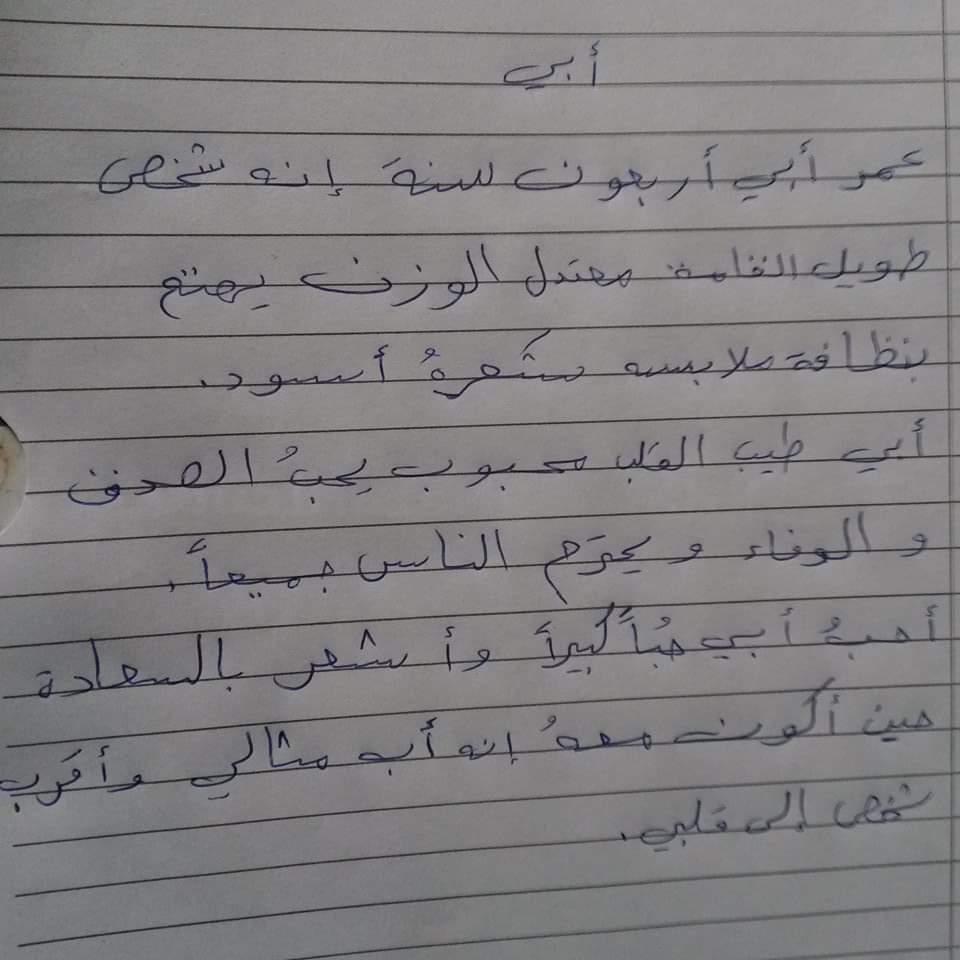 أبي
عمر أبي أربعون سنة إنه شخص
طويل القامة معتدل الوزن يهتم
بنظافة ملابسه شعرهُ أسود.
أبي طيب القلب محبوب يحبُ الصدق
و الوفاء و يحترم الناس جميعاً.
أحبُ أبي حُباً كبيراً وأشعر بالسعادة
حين أكون معهُ إنه أب مثالي وأقرب
شخص إلى قلبي.